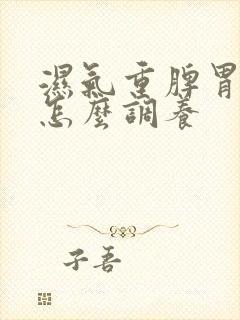 濕氣重脾胃
怎麼調養
子吾